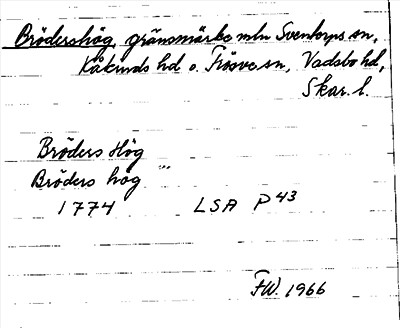 Brödershög, gränsmärke mln Sventorps sn,
Kåkinds hd o. Frösve sn, Vadsbo hd,
Skar. l.
Bröders Hög
Bröders hög ""
1774 LSA P 43
FW. 1966